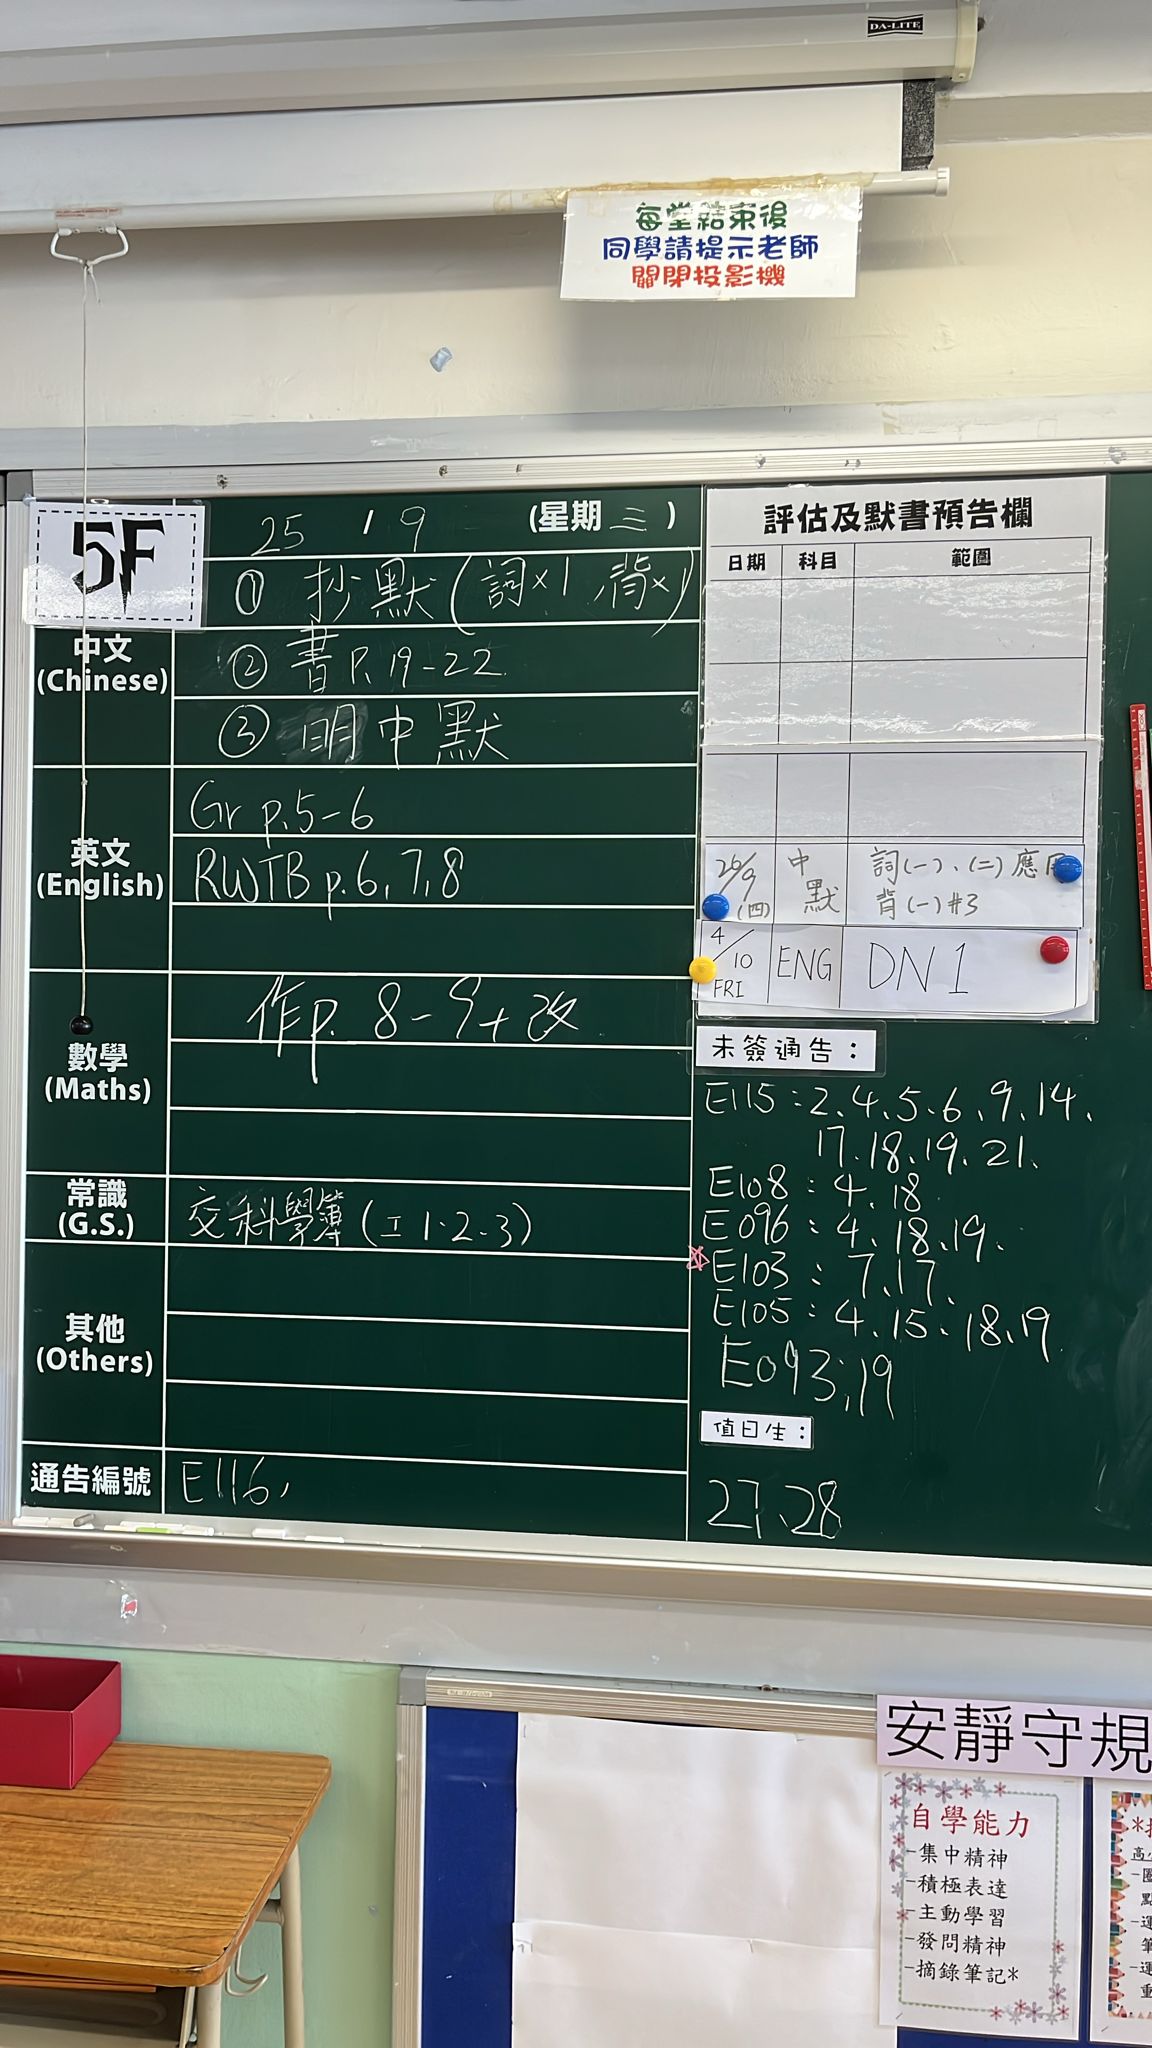 DA-LITE
每堂結束後
同學請提示老師
關閉投影機
5F
25 / 9 (星期三)
中文
(Chinese)
① 抄默(詞×1 背×1)
② 書P.19-22
③ 明中默
英文
(English)
Gr p.5-6
RWTB p.6,7,8
數學
(Maths)
作p. 8-9+改
常識
(G.S.)
交科學簿(I 1.2.3)
其他
(Others)
通告編號
E116,
評估及默書預告欄
日期 科目 範圍
26/9 (四) 中默 詞(一)、(二)應用
背(一)#3
4/10 FRI ENG DN1
未簽通告:
E115:2、4、5、6、9、14、
17、18、19、21、
E108:4、18
E096:4、18、19、
E103:7、17、
E105:4、15、18、19
E093:19
值日生:
27、28
安靜守規
自學能力
-集中精神
-積極表達
-主動學習
-發問精神
-摘錄筆記*